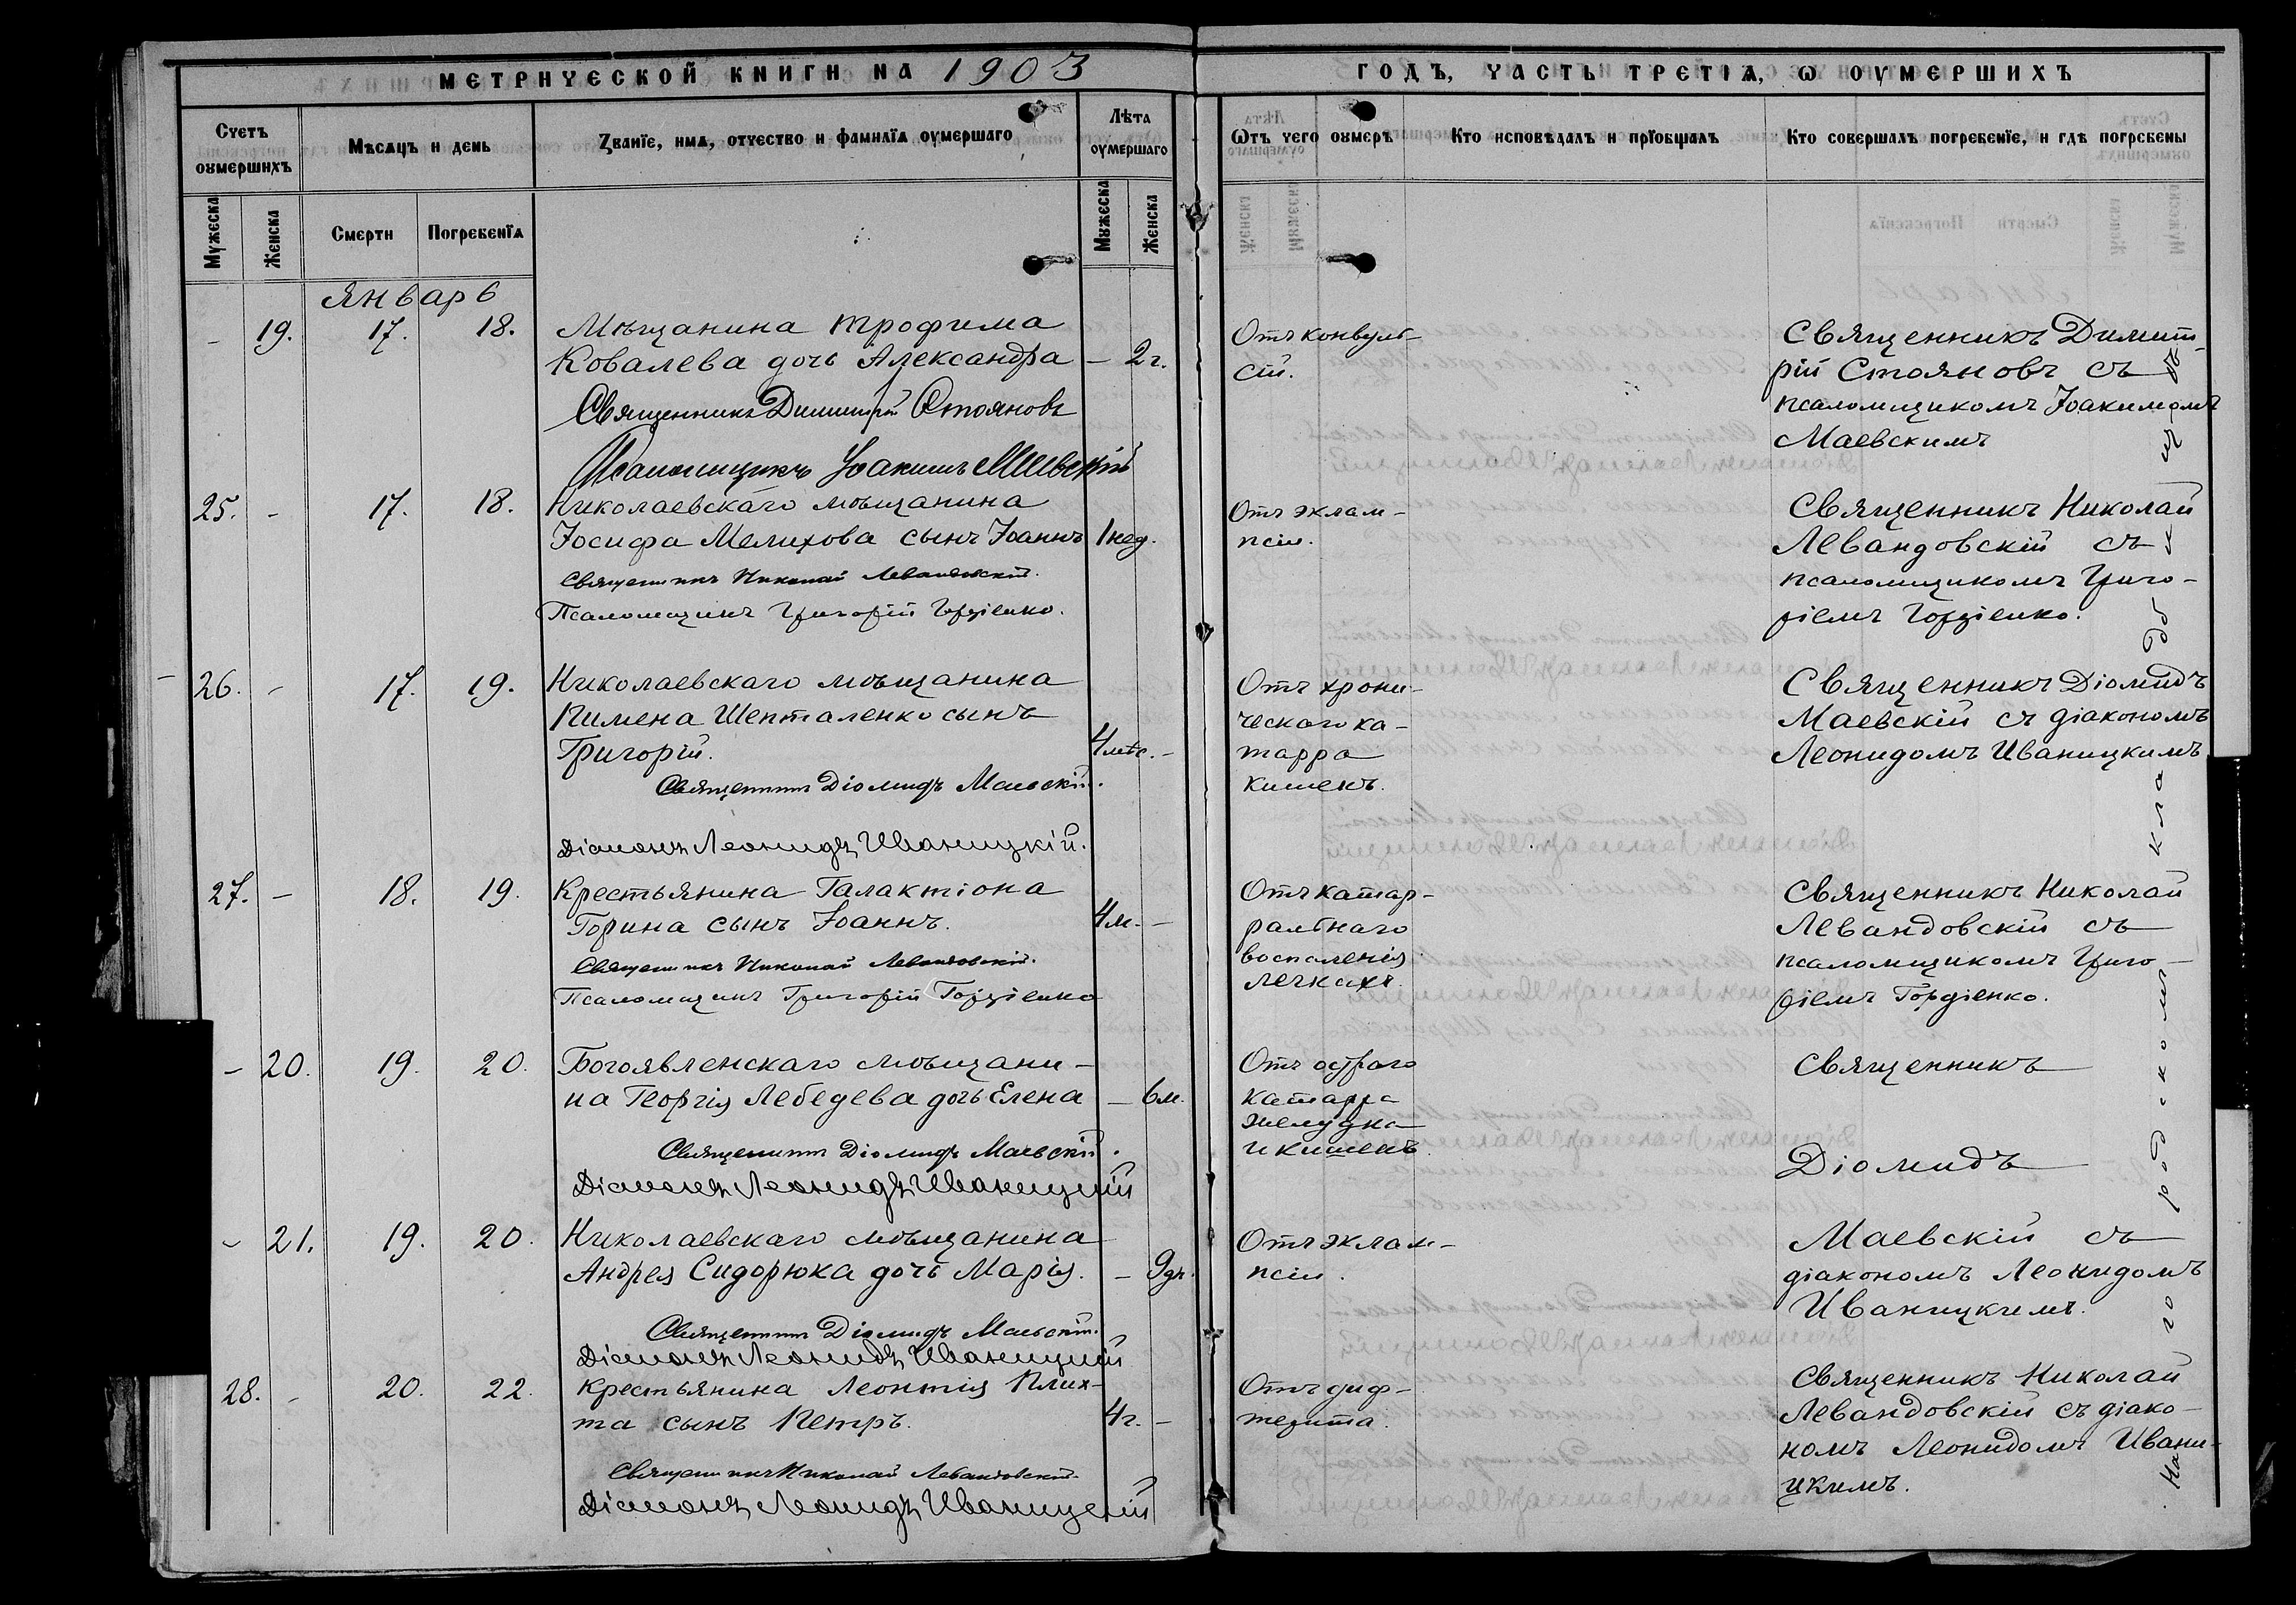 МЕТРИЧЕСКОЙ КНИГИ НА 1903
ГОДЪ, ЧАСТЬ ТРЕТІѦ, Ѡ ОУМЕРШИХЪ
Счетъ оумершихъ
Мѣсѧцъ и день
Званїе, имѧ, отчество и фамилїѧ оумершаго
Лѣта оумершаго
Ѿтъ чего оумеръ
Кто исповѣдалъ и прїобщалъ
Кто совершалъ погребенїе, и гдѣ погребены
Мужеска
Женска
Смерти
Погребенїѧ
Мужеска
Женска
Январь
- 19. 17. 18. Мѣщанина Трофима
Ковалева дочь Александра - 2 г.
Священникъ Димитрій Стояновъ
Псаломщикъ Іоакимъ Маевскій
Отъ конвуль-
сій.
Священникъ Димит-
рій Стояновъ съ
псаломщикомъ Іоакимомъ
Маевскимъ
25. - 17. 18. Николаевскаго мѣщанина
Іосифа Мелихова сынъ Іоаннъ 1 нед.
Священникъ Николай Левандовскій.
Псаломщикъ Григорій Гордіенко.
Отъ эклам-
псіи.
Священникъ Николай
Левандовскій съ
псаломщикомъ Григо-
ріемъ Гордіенко.
26. - 17. 19. Николаевскаго мѣщанина
Пимена Шепталенко сынъ
Григорій. 4 мѣс. -
Священникъ Діомидъ Маевскій.
Діаконъ Леонидъ Иваницкій.
Отъ хрони-
ческаго ка-
тарра
кишекъ.
Священникъ Діомидъ
Маевскій съ діакономъ
Леонидомъ Иваницкимъ
27. - 18. 19. Крестьянина Галактіона
Горина сынъ Іоаннъ. 4 м. -
Священникъ Николай Левандовскій.
Псаломщикъ Григорій Гордіенко
Отъ катар-
ральнаго
воспаленія
легкихъ.
Священникъ Николай
Левандовскій съ
псаломщикомъ Григо-
ріемъ Гордіенко.
- 20. 19. 20. Богоявленскаго мѣщани-
на Георгія Лебедева дочь Елена - 6 м.
Священникъ Діомидъ Маевскій.
Діаконъ Леонидъ Иваницкій
Отъ остраго
катарра
желудка
и кишекъ.
Священникъ
Діомидъ
- 21. 19. 20. Николаевскаго мѣщанина
Андрея Сидорюка дочь Марія. - 9 дн.
Священникъ Діомидъ Маевскій.
Діаконъ Леонидъ Иваницкій
Отъ эклам-
псіи.
Маевскій съ
діакономъ Леонидомъ
Иваницкимъ.
28. - 20. 22. Крестьянина Леонтія Плих-
та сынъ Петръ. 4 г. -
Священникъ Николай Левандовскій.
Діаконъ Леонидъ Иваницкій
Отъ диф-
терита.
Священникъ Николай
Левандовскій съ діако-
номъ Леонидомъ Ивани-
цкимъ.
На городскомъ кладбищѣ